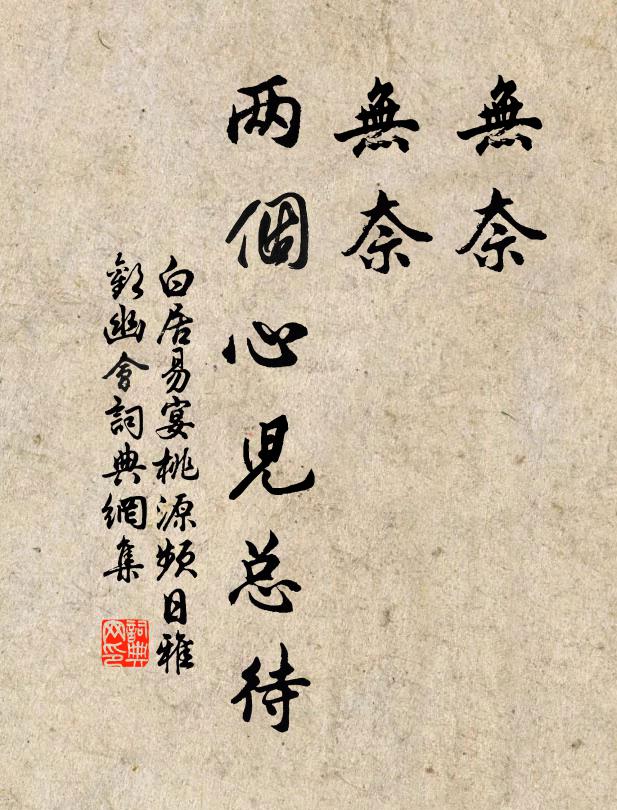 無奈
無奈
两個心兒总待
白居易宴桃源頻日雅
歡幽會詞典網集
詞典
网印